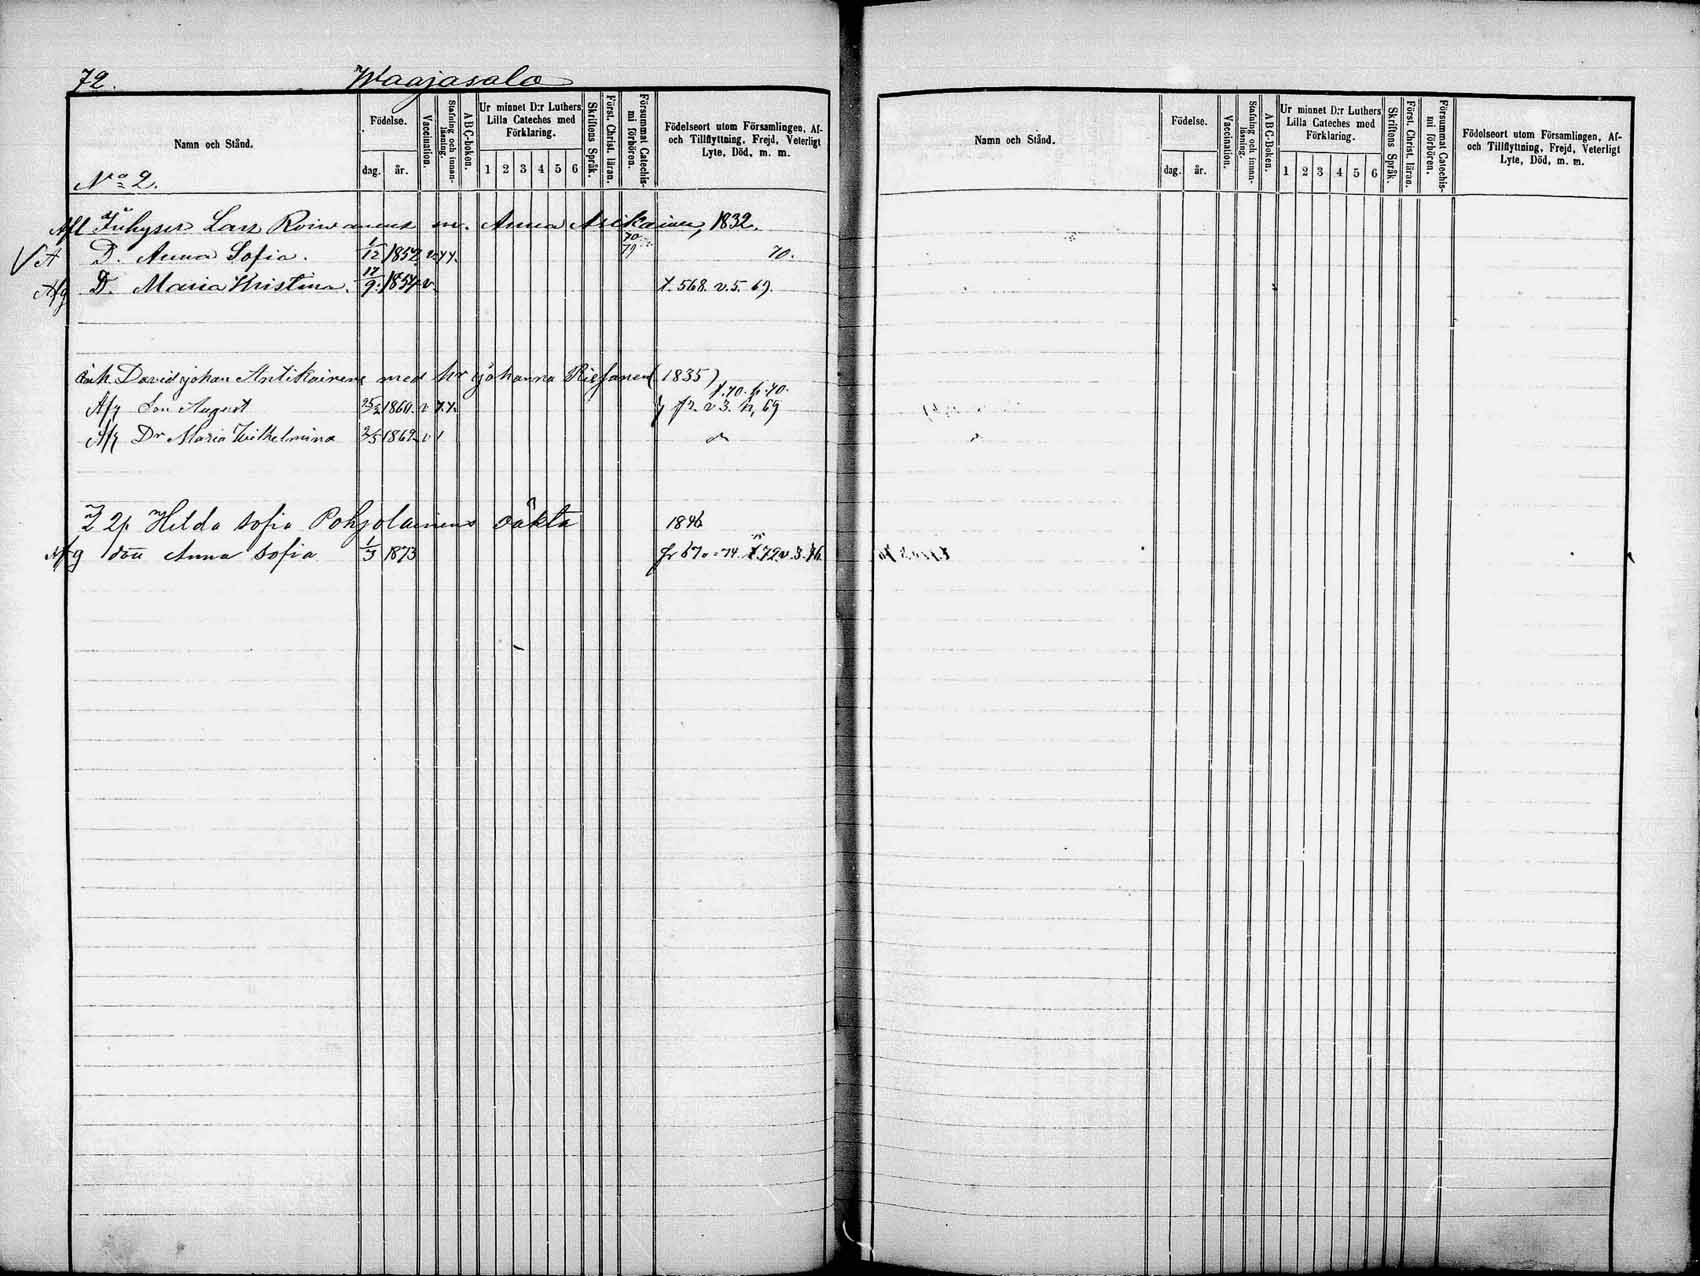 72. Waajasalo
Namn och Stånd.
Födelse.
dag. år.
Vaccination.
Stafning och innanläsning.
A B C-boken.
Ur minnet D:r Luthers Lilla Cateches med Förklaring.
1 2 3 4 5 6
Skriftens Språk.
Först. Christ. läran.
Försummat Catechismi förhören.
Födelseort utom Församlingen, Af- och Tillflyttning, Frejd, Veterligt Lyte, Död, m. m.
No 2.
Inhyser Lars Roivanens m. Anna Asikainen, 1832.
A D. Anna Sofia. 1/12 1852 v. 70.
Afg D. Maria Kristina. 17/9 1854 v. f. 568. v. 5. 69.
Inh. David Johan Antikainens med hr Johanna (1835)
f. 70. p. 70.
Afg Son August 25/2 1860 v f 2. v 3. 69
Afg Dr Maria Wilhelmina 2/5 1862 v
Hilda Sofia Pohjolainens oäkta 1846
Afg dotr Anna Sofia 1/3 1873 fr 570 74. f. 72 v. 3. 76.
Namn och Stånd.
Födelse.
dag. år.
Vaccination.
Stafning och innanläsning.
A B C-Boken.
Ur minnet D:r Luthers Lilla Cateches med Förklaring.
1 2 3 4 5 6
Skriftens Språk.
Först. Christ. läran.
Försummat Catechismi förhören.
Födelseort utom Församlingen, Af- och Tillflyttning, Frejd, Veterligt Lyte, Död, m. m.